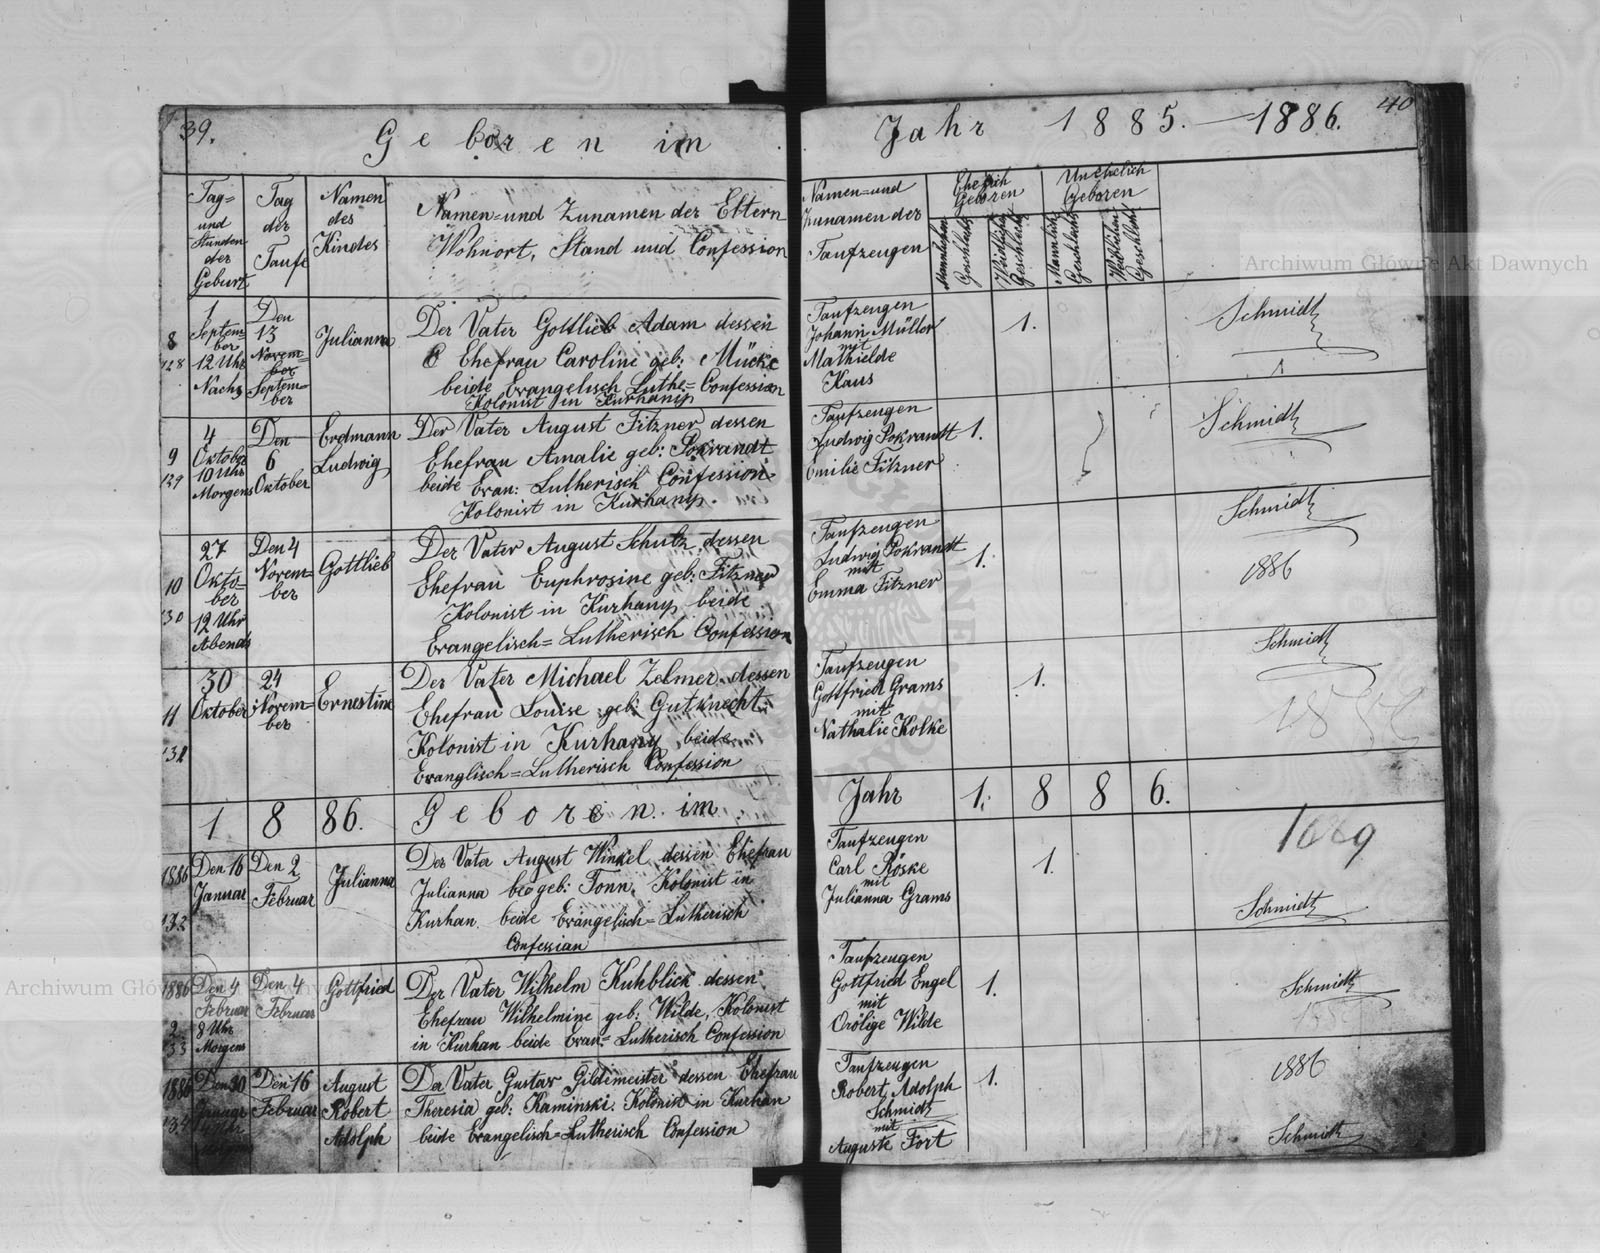 39.
Geboren im
Tag=
und
Stunden
der
Geburt
Tag
der
Taufe
Namen
des
Kindes
Namen=und Zunamen der Eltern
Wohnort, Stand und Confession
8
128
1
Septem=
ber
12 Uhr
Nachs
Den
13
Novem=
ber
Septem=
ber
Julianna
Der Vater Gottlieb Adam dessen
Ehefrau Caroline geb: Mücke
beide Evangelisch Luthe= Confession
Kolonist in Kurhany
9
129
4
Oktober
10 Uhr
Morgens
Den
6
Oktober
Erdmann
Ludwig
Der Vater August Fitzner dessen
Ehefrau Amalie geb: Pokrandt
beide Evan: Lutherisch Confession
Kolonist in Kurhany.
10
130
27
Okto=
ber
12 Uhr
Abends
Den 4
Novem=
ber
Gottlieb
Der Vater August Schulz dessen
Ehefrau Euphrosine geb: Fitzner
Kolonist in Kurhany beide
Evangelisch=Lutherisch Confession
11
131
30
Oktober
24
Novem=
ber
Ernestine
Der Vater Michael Zelmer dessen
Ehefrau Louise geb: Gutknecht
Kolonist in Kurhany beide
Evanglisch=Lutherisch Confession
1 8 86. Geboren im
1886
132
Den 16
Januar
Den 2
Februar
Julianna
Der Vater August Winkel dessen Ehefrau
Julianna geb: Tonn. Kolonist in
Kurhan beide Evangelisch=Lutherisch
Confession
1886
2
133
Den 4
Februar
8 Uhr
Morgens
Den 4
Februar
Gottfried
Der Vater Wilhelm Kuhblick dessen
Ehefrau Wilhelmine geb: Wilde, Kolonist
in Kurhan beide Evan= Lutherisch Confession
1886
134
Den 30
Januar
Den 16
Februar
August
Robert
Adolph
Der Vater Gustav Gildemeister dessen Ehefrau
Theresia geb: Kaminski. Kolonist in Kurhan
beide Evangelisch=Lutherisch Confession
Jahr 1885.—1886.
40
Namen=und
Zunamen der
Taufzeugen
Ehelich
Geboren
Unehelich
Geboren
Männlichen
Geschlechts
Weiblichen
Geschlechts
Männlich
Geschlechts
Weiblichen
Geschlechts
Taufzeugen
Johann Müller
mit
Mathielde
Kaus
1.
Schmidt
Taufzeugen
Ludwig Pokrandt
Emilie Fitzner
1.
Schmidt
Taufzeugen
Ludwig Pokrandt
mit
Emma Fitzner
1.
Schmidt
1886
Taufzeugen
Gottfried Grams
mit
Nathalie Kolke
1.
Schmidt
Jahr 1. 8 8 6.
Taufzeugen
Carl Röske
mit
Julianna Grams
1.
Schmidt
Taufzeugen
Gottfried Engel
mit
Orölige Wilde
1.
Schmidt
Taufzeugen
Robert Adolph
Schmidt
mit
Auguste Fort
1.
1886
Schmidt
Archiwum Główne Akt Dawnych